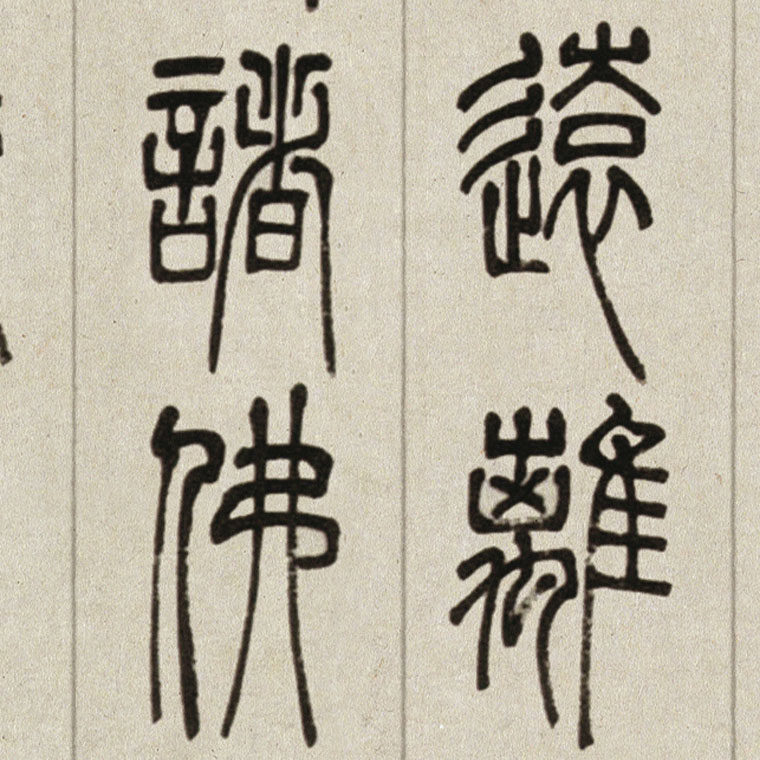 遠離
諸佛